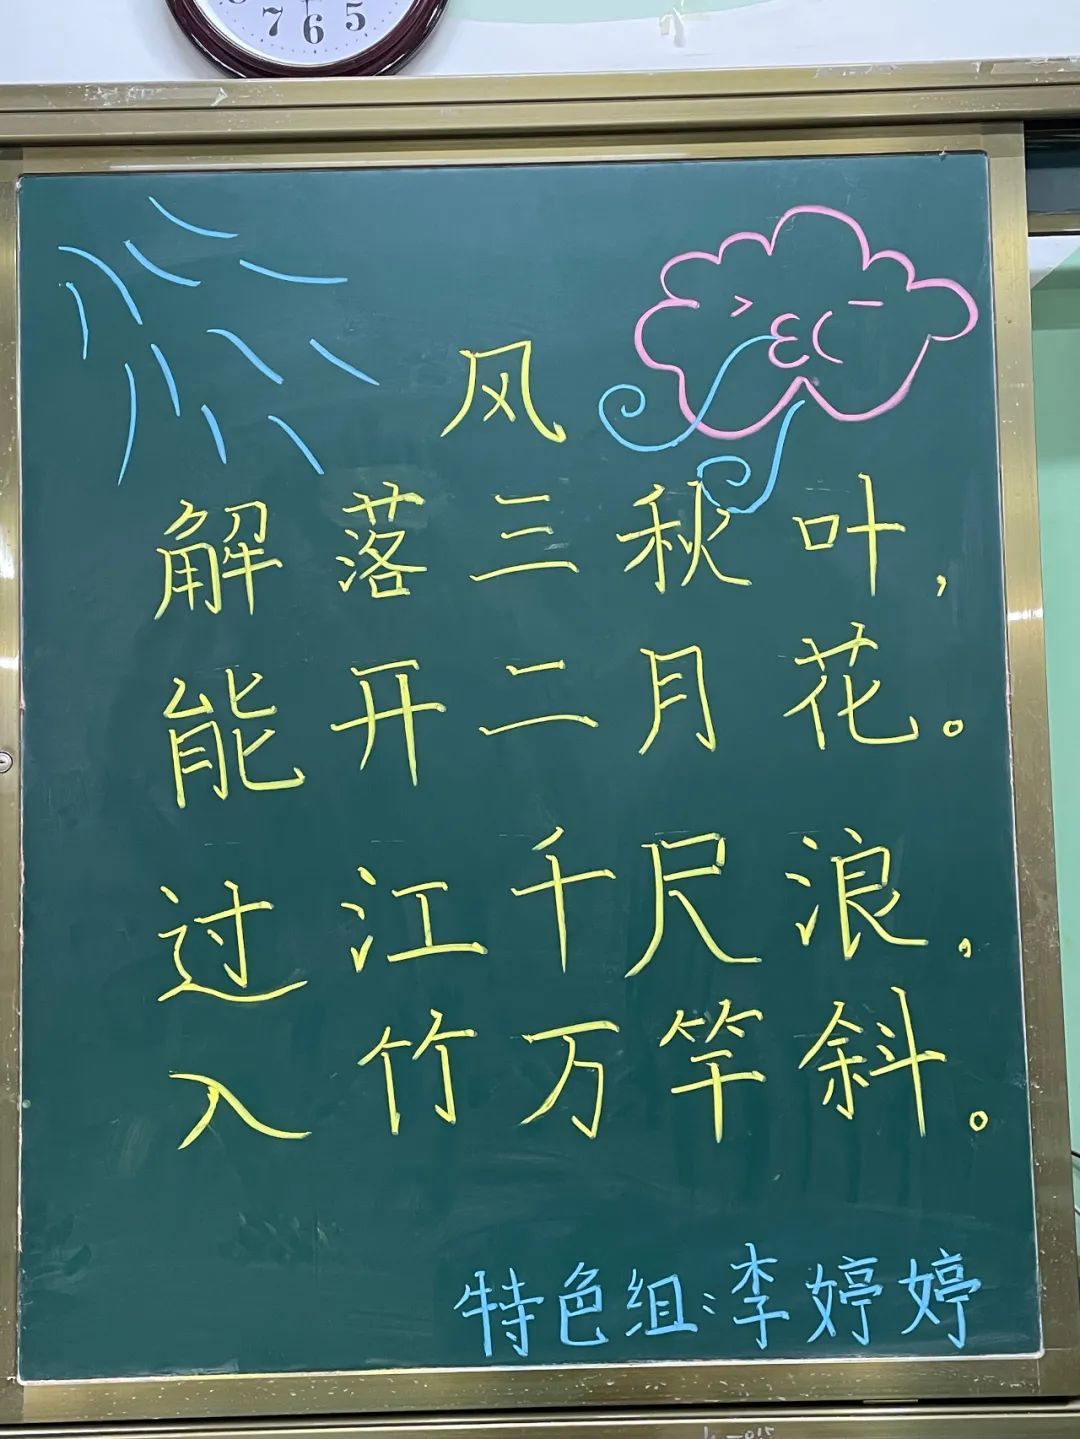 7 6 5
风
解落三秋叶，
能开二月花。
过江千尺浪，
入竹万竿斜。
特色组：李婷婷